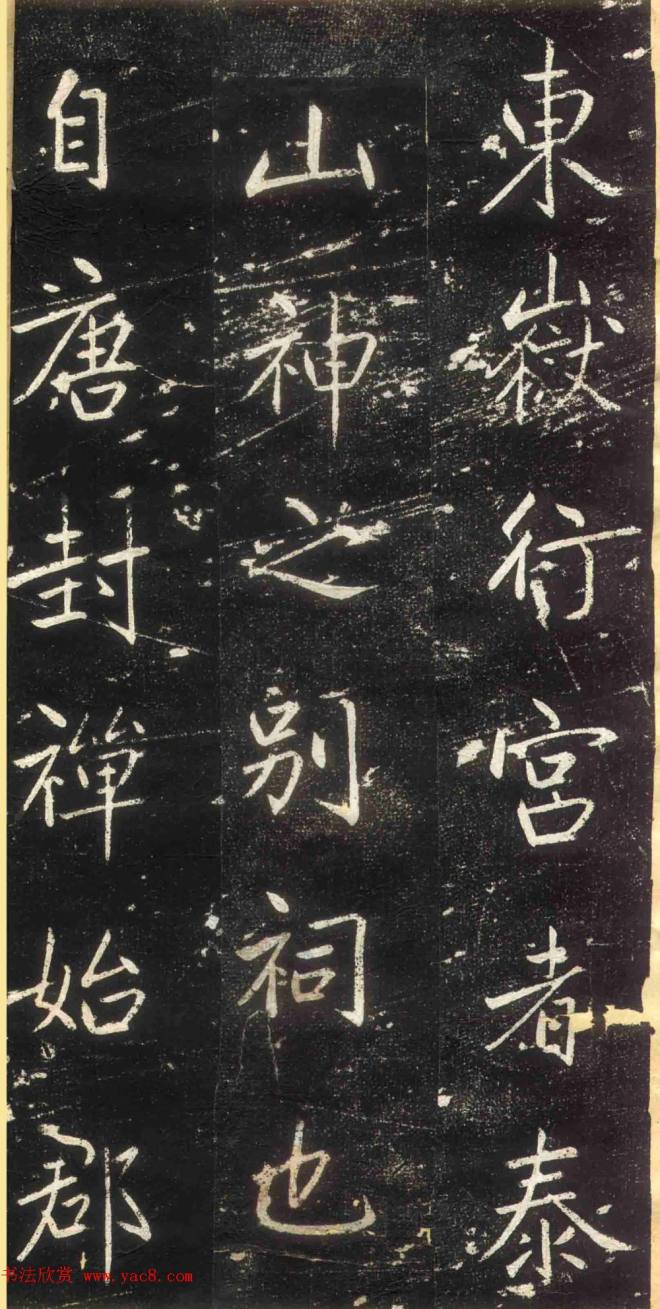 東嶽行宮者泰
山神之别祠也
自唐封禪始郡
书法欣赏 www.yac8.com